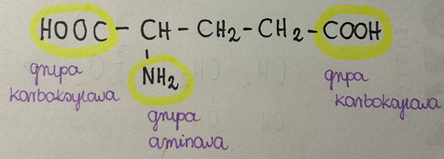 HOOC - CH - CH₂ - CH₂ - COOH
NH₂
grupa
karboksylowa
grupa
aminowa
grupa
karboksylowa